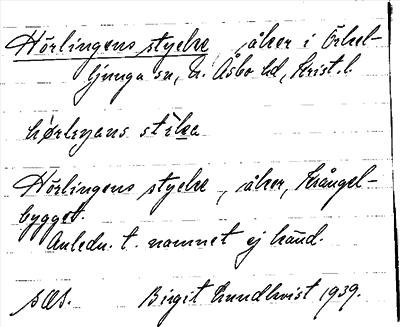 Hörlingens styelse, åker i Örkel-
ljunga sn, N. Åsbo hd, Krist. l.
hørlıŋans stı̄lsa
Hörlingens styelse, åker, Krångel-
bygget.
Anledn. t. namnet ej känd.
sas. Birgit Lundkvist 1939.